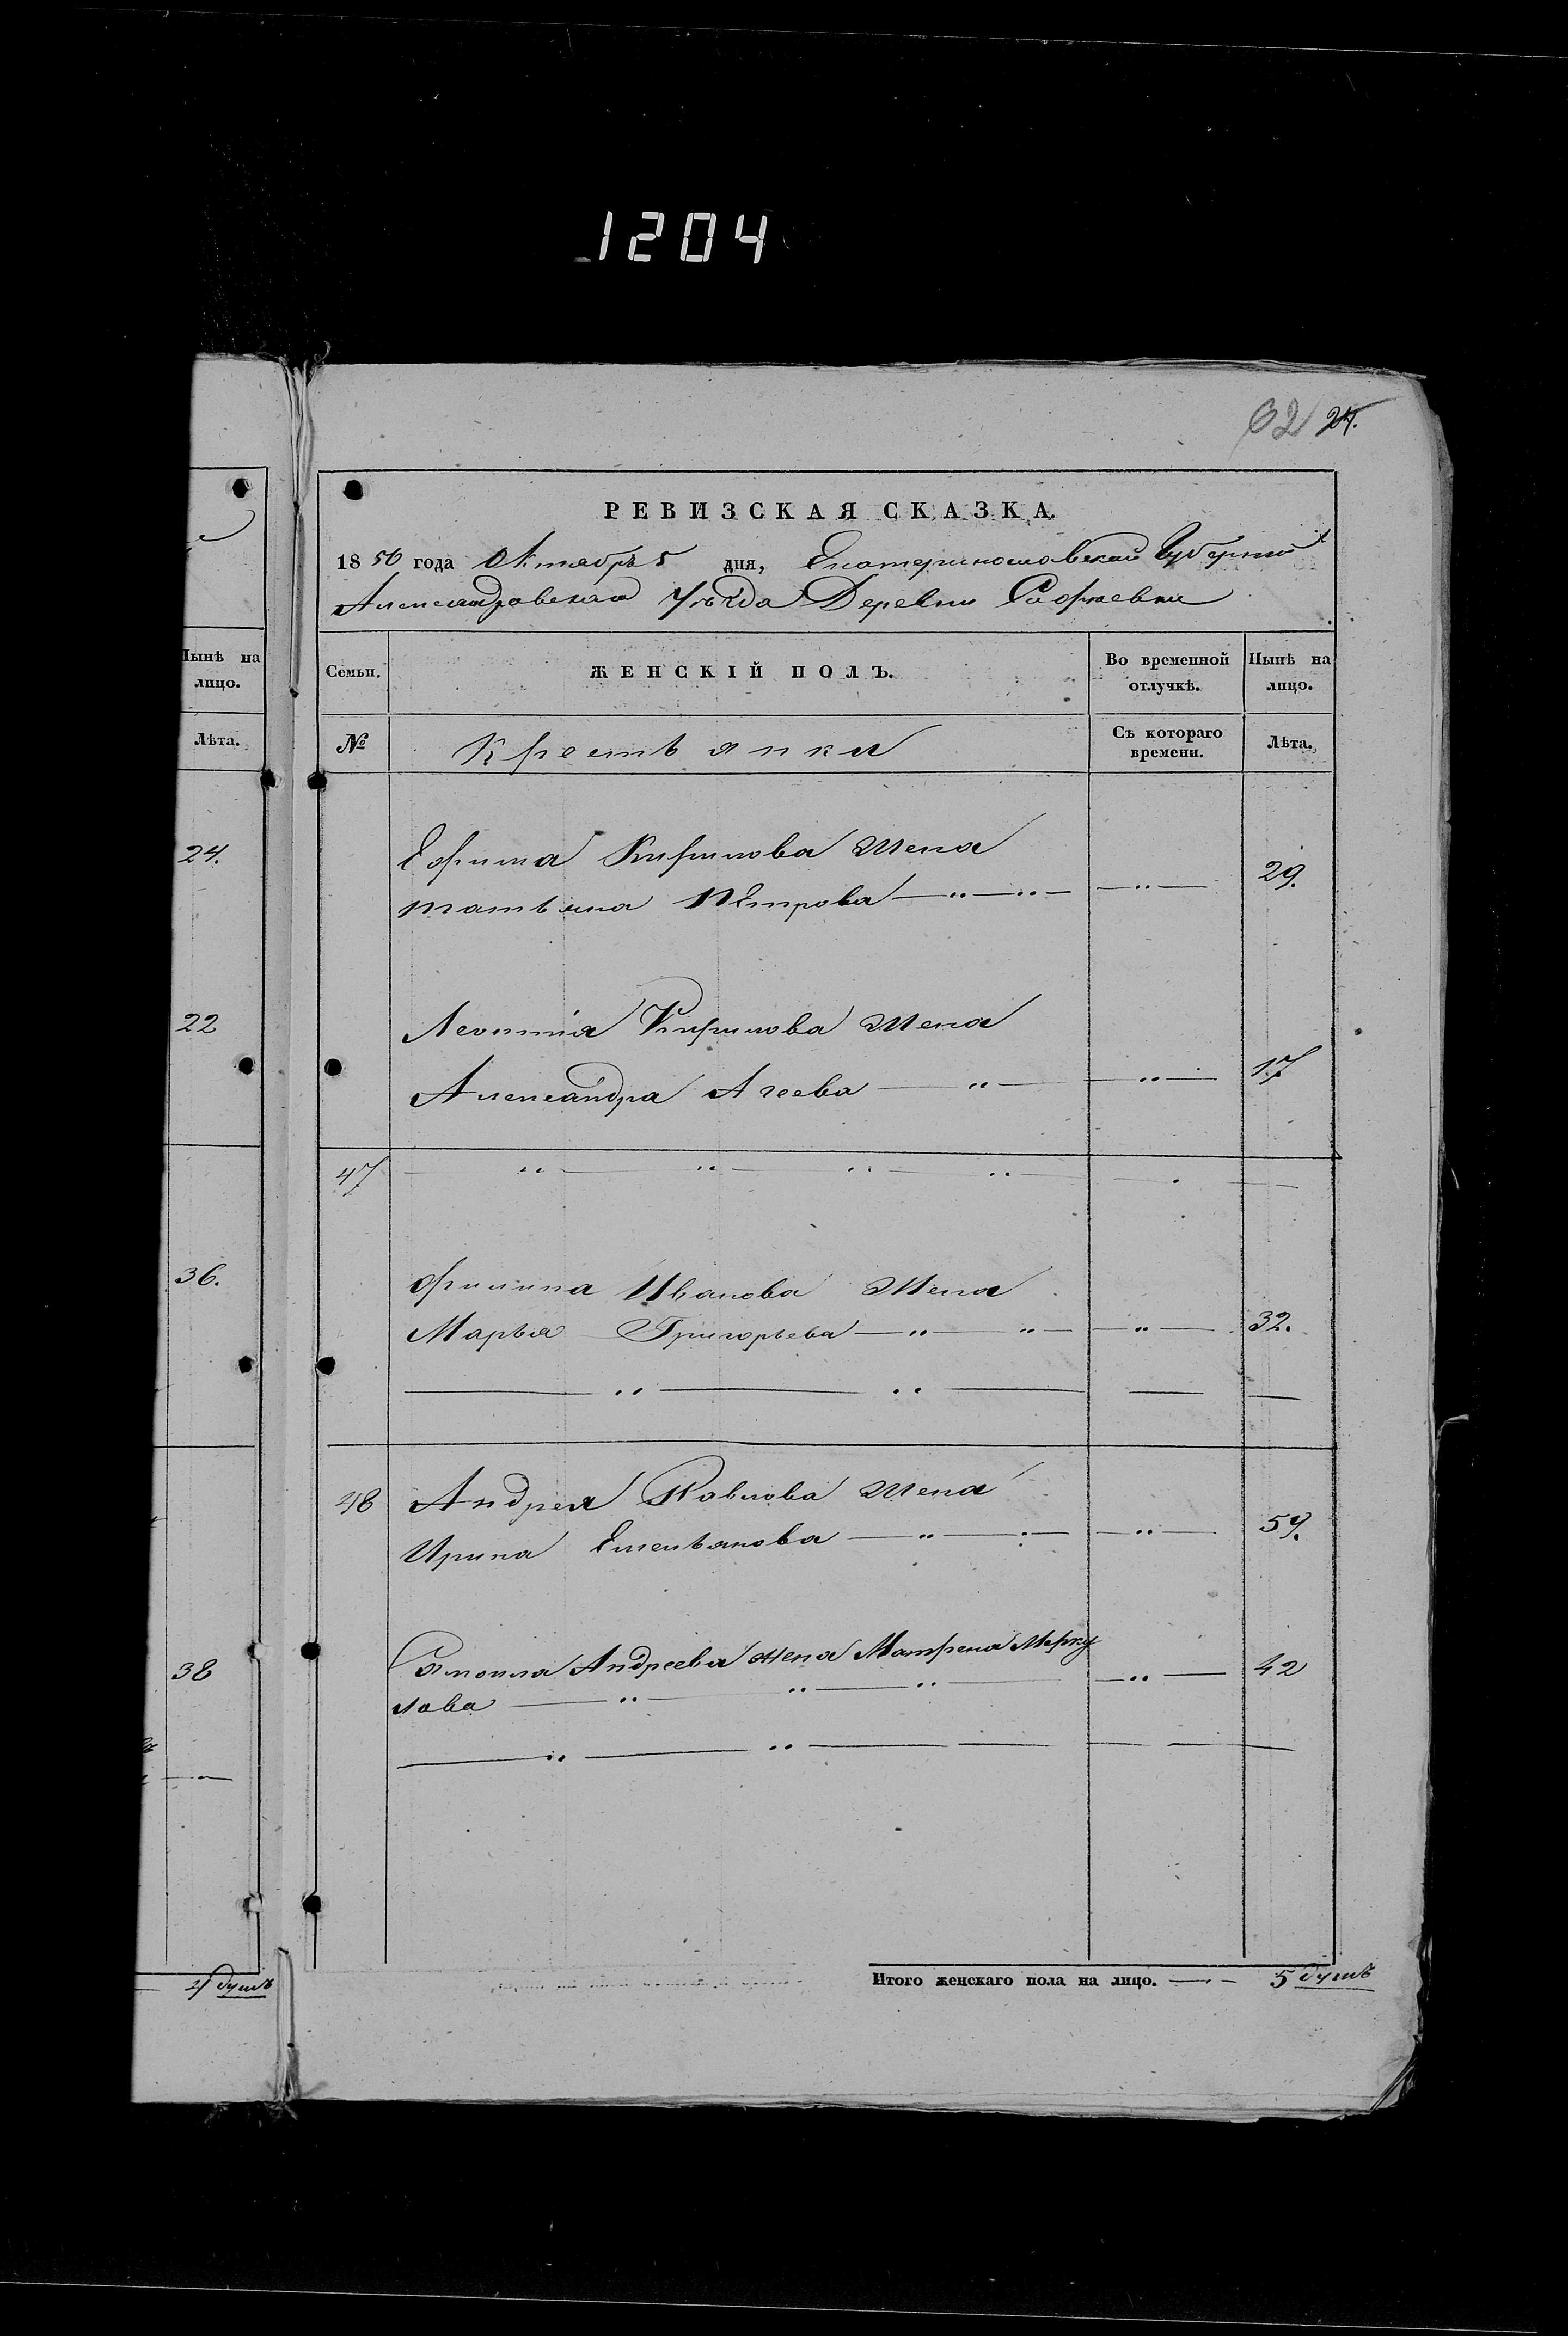 1204
62 24.
РЕВИЗСКАЯ СКАЗКА.
1850 года Октября 5 дня, Екатеринославской Губерніи
Александровскаго Уѣзда Деревни Софіевки
Нынѣ на
лицо.
Лѣта.
24.
22
36.
38
4 душъ
Семьи. ЖЕНСКІЙ ПОЛЪ. Во временной отлучкѣ. Нынѣ на лицо.
№ Крестьянки Съ котораго времени. Лѣта.
Ефима Кирилова жена
татьяна Петрова 29.
Леонтія Кирилова жена
Александра Агеева 17
47
Филипа Иванова жена
Марья Григорьева 32.
48 Андрея Павлова жена
Ирина Емельянова 59.
Самоила Андреева жена Матрена Мерку
лова 42
Итого женскаго пола на лицо. 5 душъ